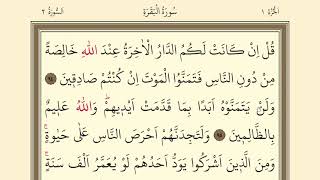 اَلْجُزْءُ ١ سُورَةُ الْبَقَرَةِ اَلسُّورَةُ ٢
قُلْ اِنْ كَانَتْ لَكُمُ الدَّارُ الْاٰخِرَةُ عِنْدَ اللّٰهِ خَالِصَةً
مِنْ دُونِ النَّاسِ فَتَمَنَّوُا الْمَوْتَ اِنْ كُنْتُمْ صَادِقِينَ ٩٤
وَلَنْ يَتَمَنَّوْهُ اَبَدًا بِمَا قَدَّمَتْ اَيْدِيهِمْ وَاللّٰهُ عَلِيمٌ
بِالظَّالِمِينَ ٩٥ وَلَتَجِدَنَّهُمْ اَحْرَصَ النَّاسِ عَلٰى حَيٰوةٍ
وَمِنَ الَّذِينَ اَشْرَكُوا يَوَدُّ اَحَدُهُمْ لَوْ يُعَمَّرُ اَلْفَ سَنَةٍ